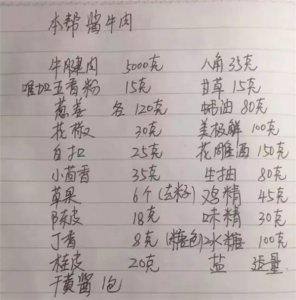 本帮酱牛肉
牛腱肉 5000克 八角 35克
唯加五香粉 15克 甘草 15克
葱姜 各 120克 蚝油 80克
花椒 30克 美极鲜 100克
白扣 25克 花雕酒 150克
小茴香 35克 生抽 80克
草果 6个(去籽) 鸡精 45克
陈皮 18克 味精 30克
丁香 8克(糖包) 冰糖 100克
桂皮 20克 盐 适量
干黄酱 1包